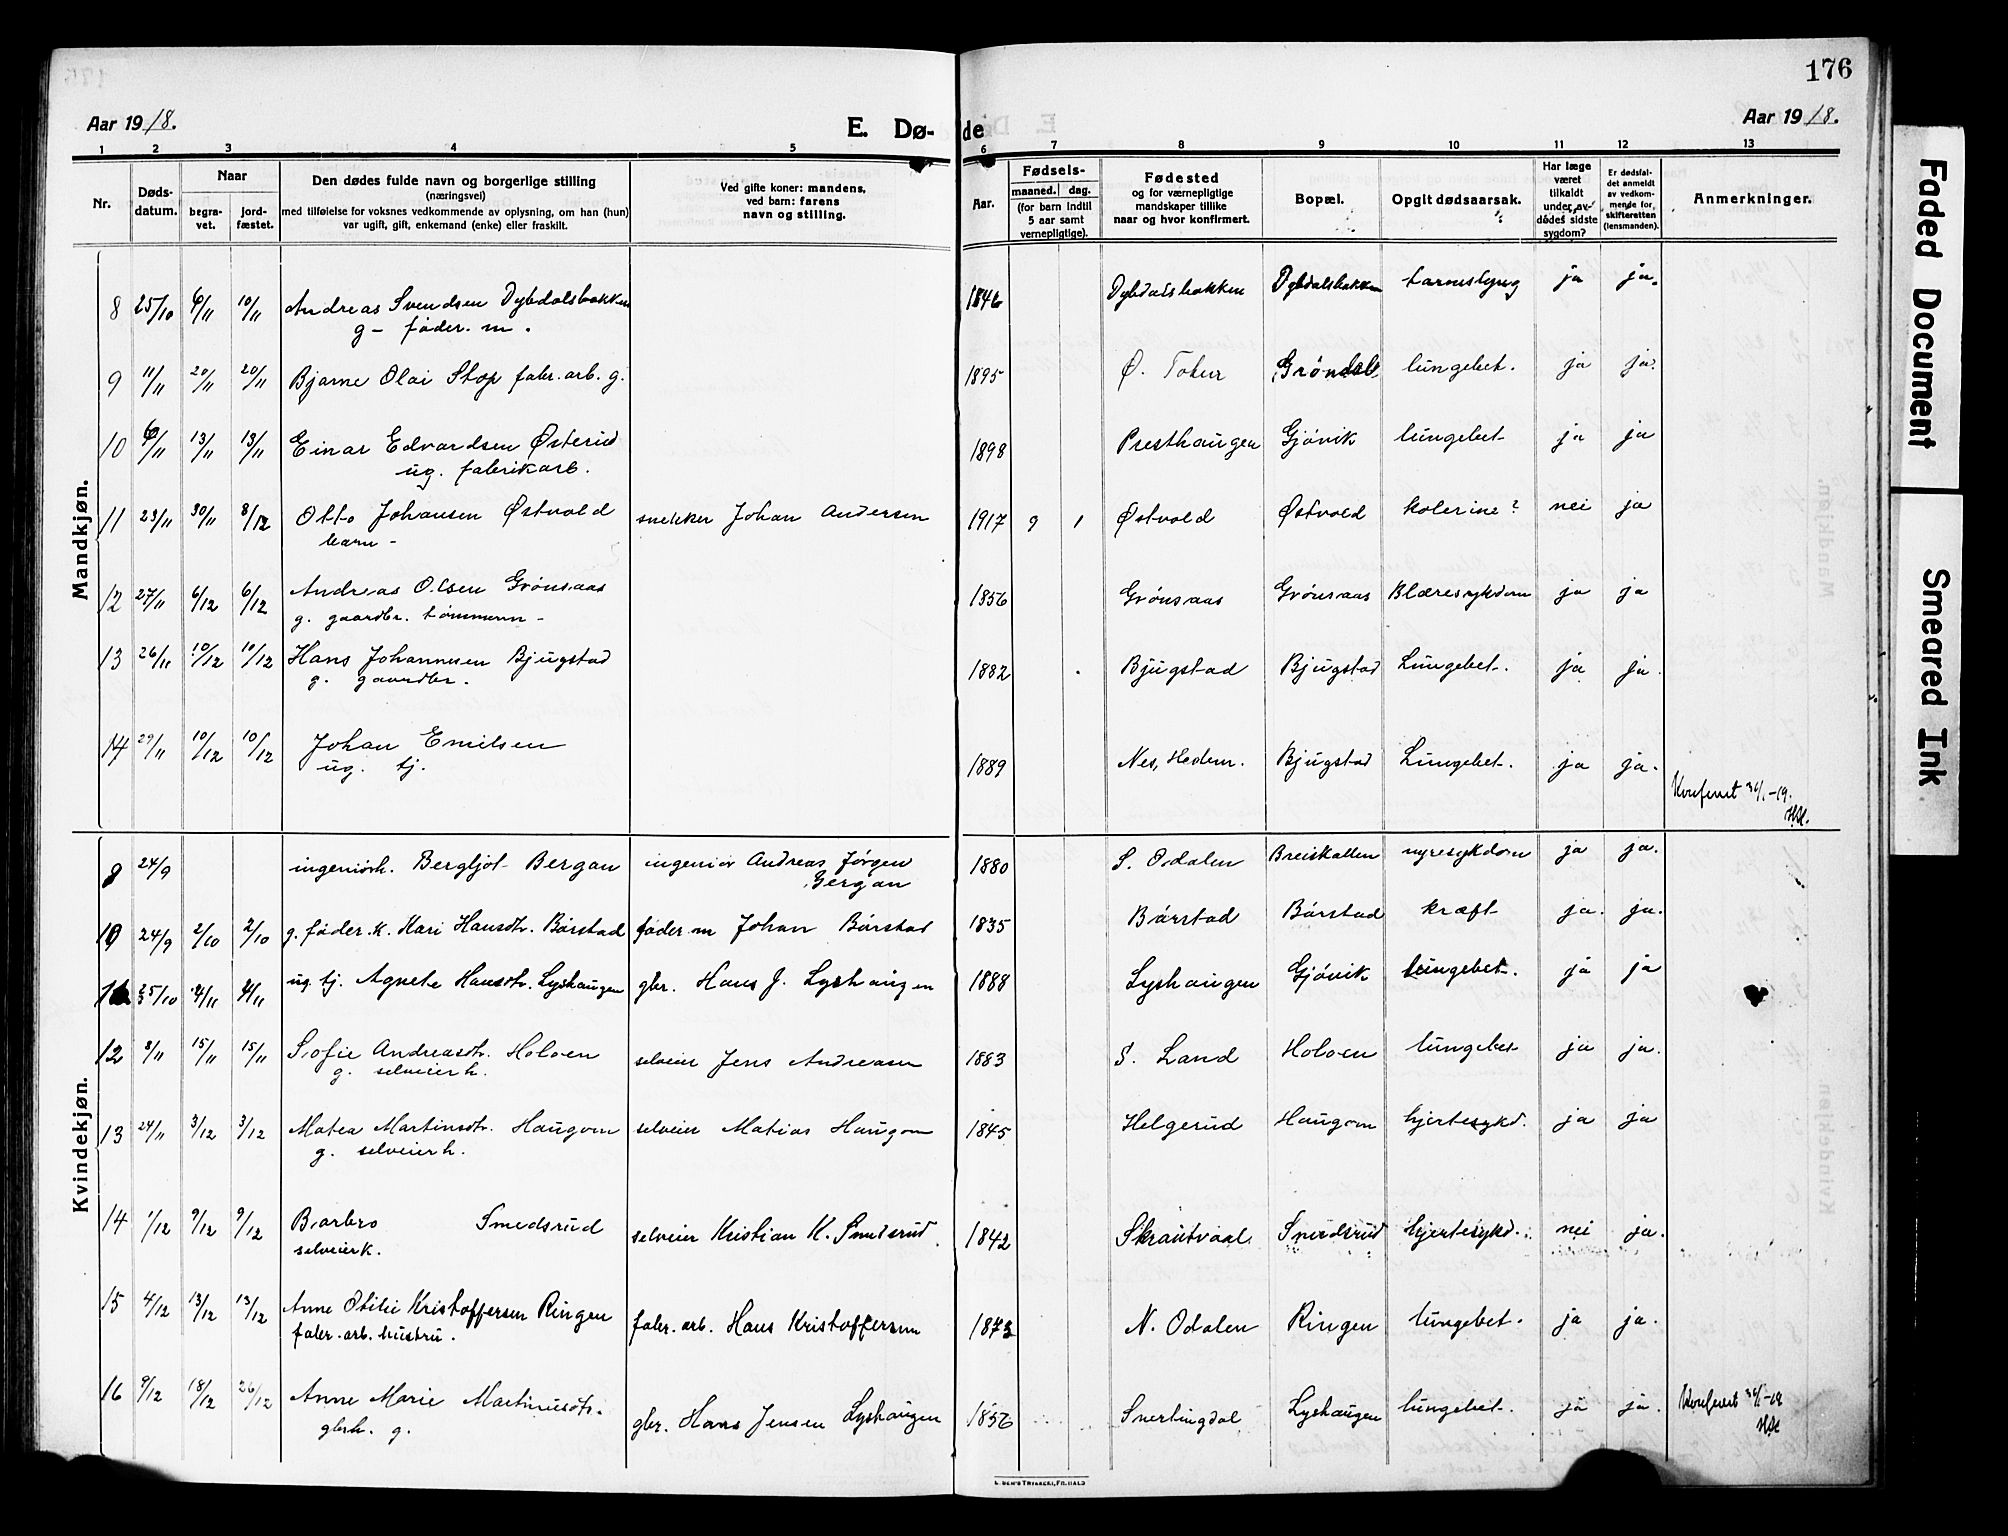 176
Aar 1918.
E. Dø-
de
Aar 1918.
1 2 3 4 5 6 7 8 9 10 11 12 13
Nr.
Døds-
datum.
Naar
begra-
vet.
jord-
fæstet.
Den dødes fulde navn og borgerlige stilling
(næringsvei)
med tilføielse for voksnes vedkommende av oplysning, om han (hun)
var ugift, gift, enkemand (enke) eller fraskilt.
Ved gifte koner: mandens,
ved barn: farens
navn og stilling.
Aar.
Fødsels-
maaned. dag.
(for barn indtil
5 aar samt
vernepligtige).
Fødested
og for værnepligtige
mandskaper tillike
naar og hvor konfirmert.
Bopæl.
Opgit dødsaarsak.
Har læge
været
tilkaldt
under av-
dødes sidste
sygdom?
Er dødsfal-
det anmeldt
av vedkom-
mende for
skifteretten
(lensmanden).
Anmerkninger.
Mandkjøn.
8 25/10 6/11 10/11 Andreas Svendsen Dybdalsbakken 1846 Dybdalsbakken Dybdalsbakken ja ja.
g- føder. m.
9 11/11 20/11 20/11 Bjarne Olai Stop fabr. arb. g. 1895 Ø. Toten Grøndal lungebet. ja ja.
10 6/11 13/11 13/11 Einar Edvardsen Østerud 1898 Presthaugen Gjøvik lungebet. ja ja
ug. fabrikarb.
11 23/11 30/11 8/12 Otto Johansen Østvold snekker Johan Andersen 1917 9 1 Østvold Østvold kolerine? nei ja
barn -
12 27/11 6/12 6/12 Andreas Olsen Grønsaas 1856 Grønsaas Grønsaas Blæresykdom ja ja
g. gaardbr. tømmerm -
13 26/11 10/12 10/12 Hans Johannesen Bjugstad 1882 Bjugstad Bjugstad Lungebet. ja ja.
g. gaardbr.
14 29/11 10/12 10/12 Johan Emilsen 1889 Nes, Hedem. Bjugstad Lungebet. ja ja.
ug. tj.
Konferert -19.
Kvindekjøn.
9 24/9 ingeniørh. Bergljot Bergan ingeniør Andreas Jørgen 1880 S. Odalen Breiskallen nyresykdom ja ja.
Bergan
10 24/9 2/10 2/10 g. føder. k. Kari Hansdtr. Bårstad føder m Johan Bårstad 1835 Bårstad Bårstad kræft ja. ja.
11 25/10 4/11 4/11 ug. tj. Agnete Hansdtr. Lyshaugen gbr. Hans J. Lyshaugen 1888 Lyshaugen Gjøvik lungebet. ja ja
12 8/11 15/11 15/11 Sofie Andreasdtr. Holoen selveier Jens Andreasen 1883 S. Land Holoen lungebet ja ja.
g. selveierh.
13 24/11 3/12 3/12 Matea Martinsdtr. Haugom selveier Matias Haugom 1845 Helgerud Haugom hjertesykd. ja ja
g. selveierh.
14 1/12 9/12 9/12 Barbro Smedsrud selveier Kristian K. Smedsrud 1842 Skrautvaal Smedsrud hjertesykd. nei ja.
selveierk.
15 4/12 13/12 13/12 Anne Otilie Kristoffersen Ringen fabr. arb. Hans Kristoffersen 1873 N. Odalen Ringen lungebet. ja ja.
fabr. arb. hustru.
16 9/12 18/12 26/12 Anne Marie Martinusdtr. gbr. Hans Jensen Lyshaugen 1856 Snertingdal Lyshaugen lungebet. ja ja. Konferert -19
gbrh. g.
Faded Document
Smeared Ink